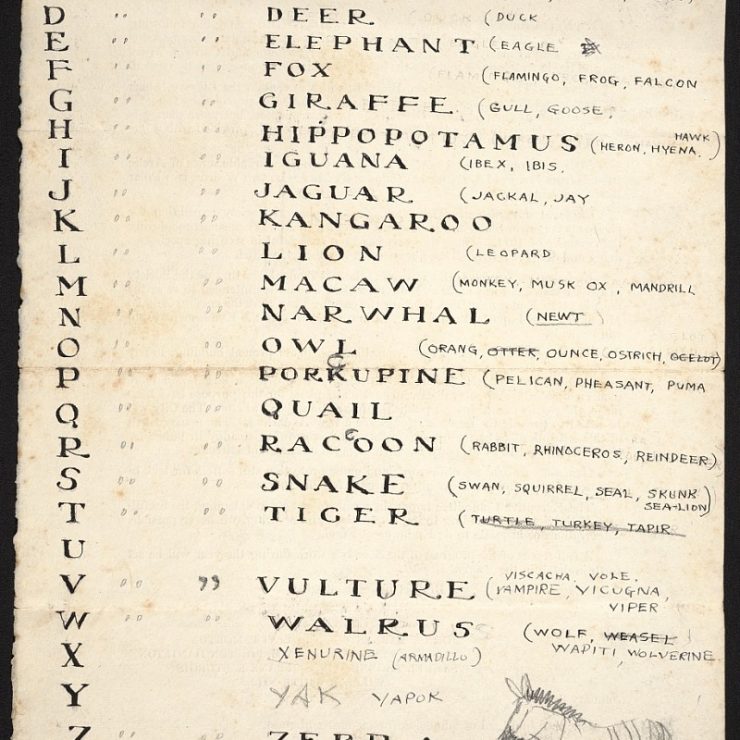 D " " DEER (DUCK
E " " ELEPHANT (EAGLE
F " " FOX (FLAMINGO, FROG, FALCON
G " " GIRAFFE (GULL, GOOSE,
H " " HIPPOPOTAMUS (HERON, HYENA. HAWK)
I " " IGUANA (IBEX, IBIS.
J " " JAGUAR (JACKAL, JAY
K " " KANGAROO
L " " LION (LEOPARD
M " " MACAW (MONKEY, MUSK OX, MANDRILL
N " " NARWHAL (NEWT)
O " " OWL (ORANG, OTTER, OUNCE, OSTRICH, OCELOT)
P " " PORKUPINE (PELICAN, PHEASANT, PUMA
C
Q " " QUAIL
R " " RACOON (RABBIT, RHINOCEROS, REINDEER)
C
S " " SNAKE (SWAN, SQUIRREL, SEAL, SKUNK
SEA-LION)
T " " TIGER (TURTLE, TURKEY, TAPIR
U
V " " VULTURE (VAMPIRE, VICUGNA,
VISCACHA, VOLE.
VIPER
W WALRUS (WOLF, WEASEL
WAPITI, WOLVERINE
X XENURINE (ARMADILLO)
Y YAK YAPOK
Z " " ZEBRA